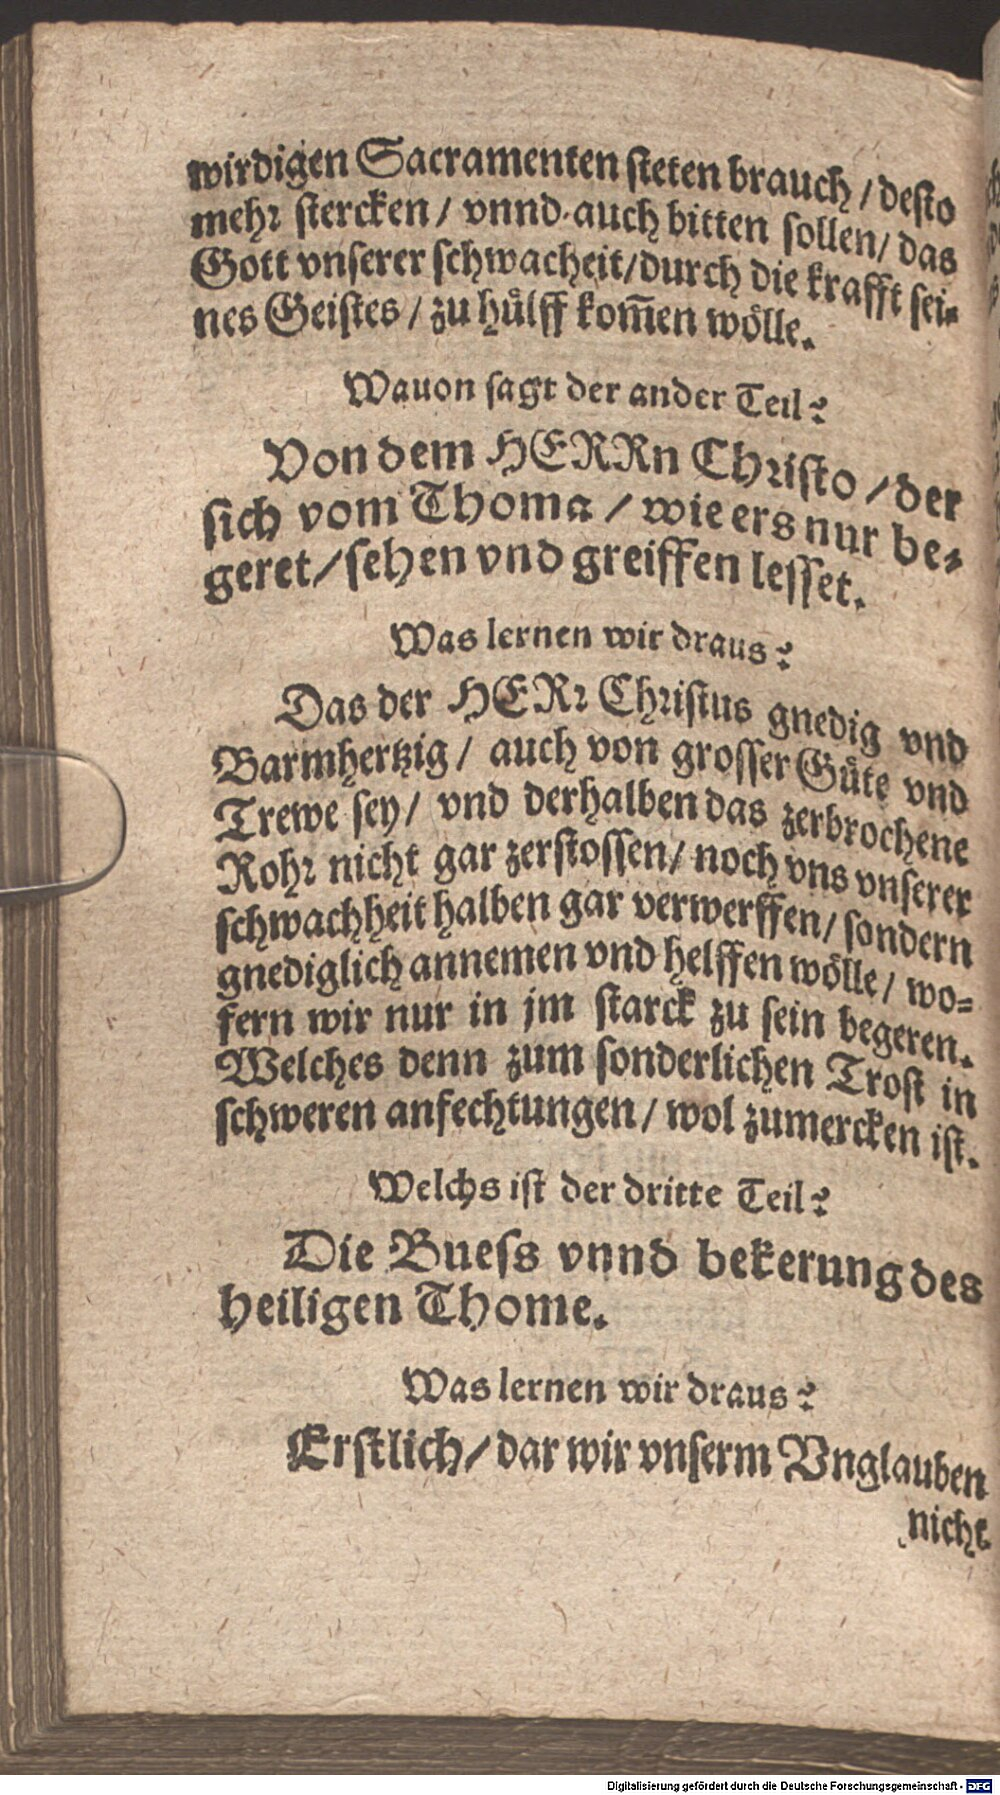 wirdigen Sacramenten steten brauch / desto
mehr stercken / vnnd auch bitten sollen / das
Gott vnserer schwacheit / durch die krafft sei-
nes Geistes / zu huͤlff kom̃en woͤlle.
Wauon sagt der ander Teil?
Von dem HERRn Christo / der
sich vom Thoma / wie ers nur be-
geret / sehen vnd greiffen lesset.
Was lernen wir draus?
Das der HERr Christus gnedig vnd
Barmhertzig / auch von grosser Guͤte vnd
Trewe sey / vnd derhalben das zerbrochene
Rohr nicht gar zerstossen / noch vns vnserer
schwachheit halben gar verwerffen / sondern
gnediglich annemen vnd helffen woͤlle / wo-
fern wir nur in jm starck zu sein begeren.
Welches denn zum sonderlichen Trost in
schweren anfechtungen / wol zumercken ist.
Welchs ist der dritte Teil?
Die Buess vnnd bekerung des
heiligen Thome.
Was lernen wir draus?
Erstlich / dar wir vnserm Vnglauben
nicht
Digitalisierung gefördert durch die Deutsche Forschungsgemeinschaft - DFG